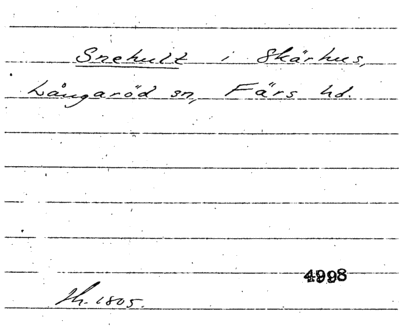 Snehult i Skärhus,
Långaröd sn, Färs hd.
4998
Jh. 1805.